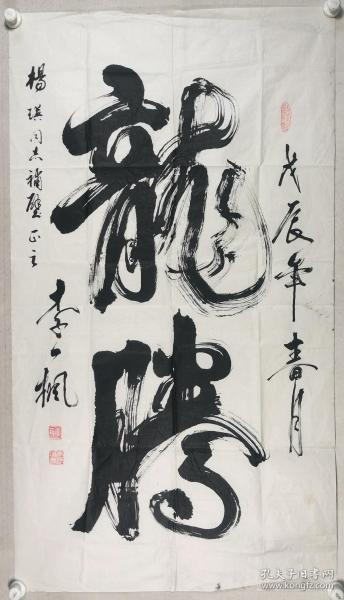 戊辰年春月
龍騰
楊瑛同志補壁正之
李一楓
孔夫子旧书网